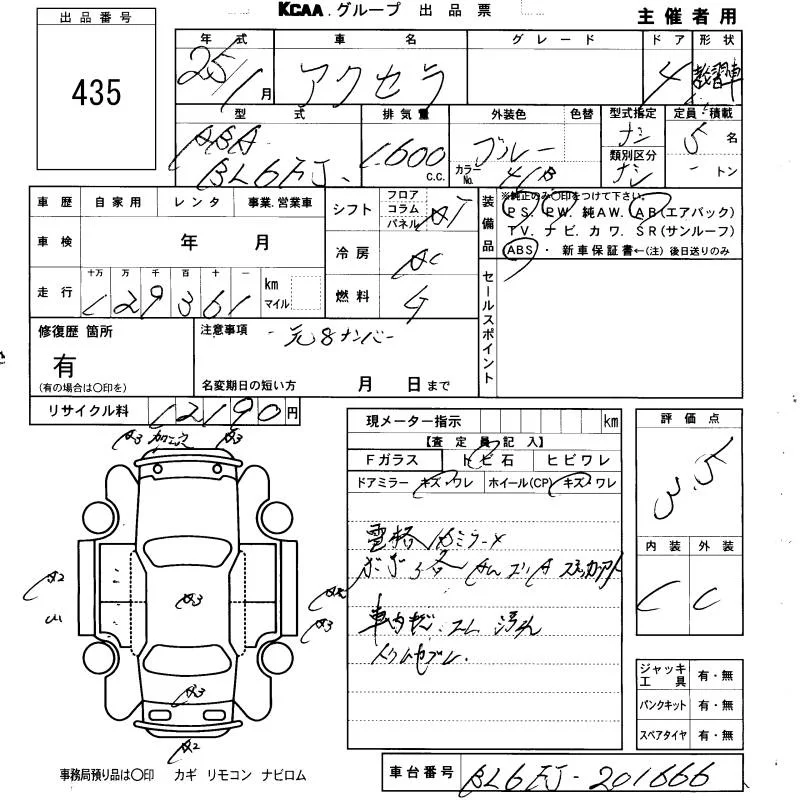 KCAA グループ 出品票
主催者用
出品番号
435
年式 車名 グレード ドア 形状
25/1月 アクセラ 4 教習車
型式 排気量 外装色 色替 型式指定 定員・積載
ABA- BL6FJ. 1,600 C.C. ブルー カラーNo. 41B ナシ 類別区分 ナシ 5名 - トン
車歴 自家用 レンタ 事業.営業車
シフト フロア コラム パネル AT
装備品 ※純正のみ〇印をつけて下さい。
PS. PW. 純AW. AB(エアバック)
TV. ナビ. カワ. SR(サンルーフ)
ABS ・ 新車保証書←(注)後日送りのみ
車検 年 月
冷房 AC
走行 十万 万 千 百 十 一 km マイル
129361
燃料 G
セールスポイント
修復歴 箇所
有
(有の場合は〇印を)
注意事項 元8ナンバー
名変期日の短い方 月 日まで
リサイクル料 12190円
現メーター指示 km
【査定員記入】
Fガラス トビ石 ヒビワレ
ドアミラー キズ・ワレ ホイール(CP) キズ・ワレ
評価点
3.5
内装 外装
C C
A3 加修 A3
A2
A3
A3
A3
A2
車内 汚れ
ジャッキ工具 有・無
パンクキット 有・無
スペアタイヤ 有・無
事務局預り品は〇印 カギ リモコン ナビロム
車台番号 BL6FJ-201666